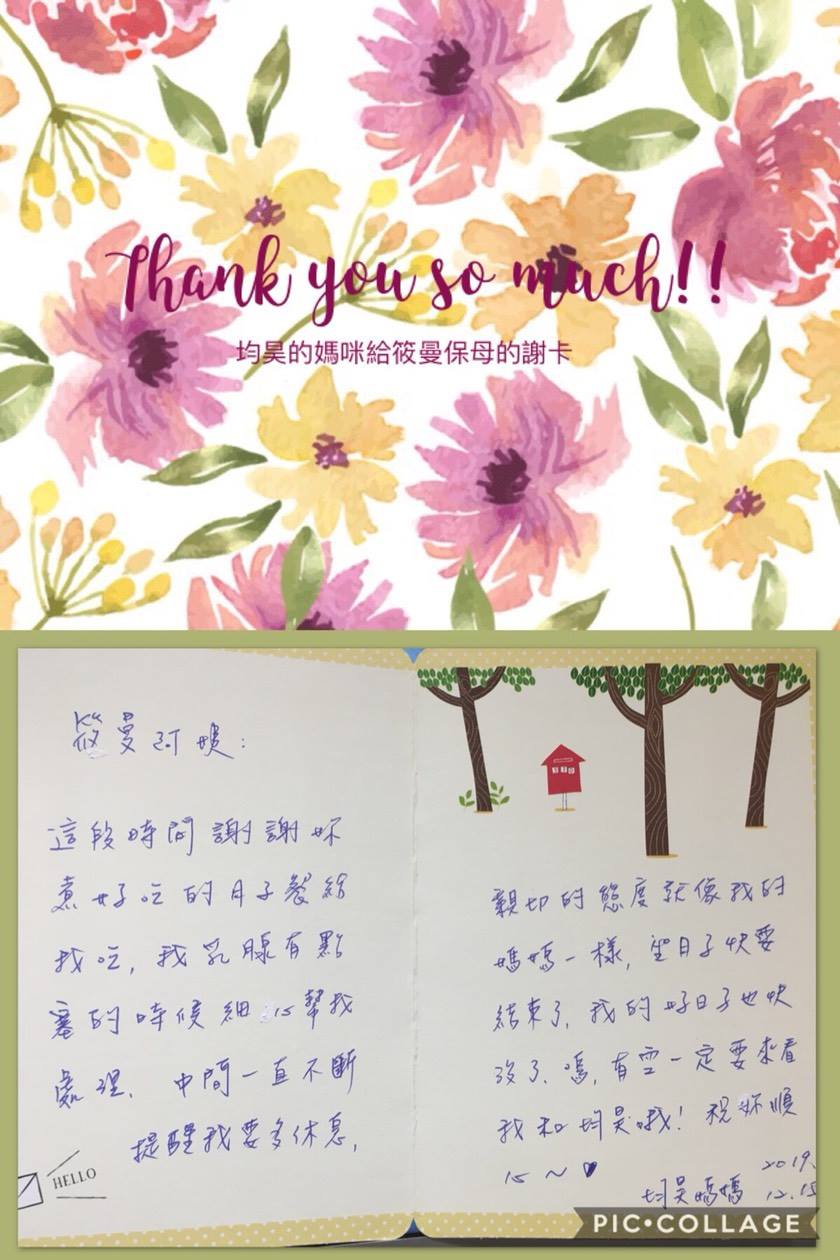 Thank you so much!!
均昊的媽咪給筱曼保母的謝卡
筱曼阿姨:
這段時間謝謝妳
煮好吃的月子餐給
我吃,我乳腺有點
塞的時候細心幫我
處理、中間一直不斷
提醒我要多休息,
HELLO
親切的態度就像我的
媽媽一樣,坐月子快要
結束了,我的好日子也快
沒了、嗚,有空一定要來看
我和均昊哦!祝妳順
心~♥
2019.
均昊媽媽 12.15
PIC•COLLAGE